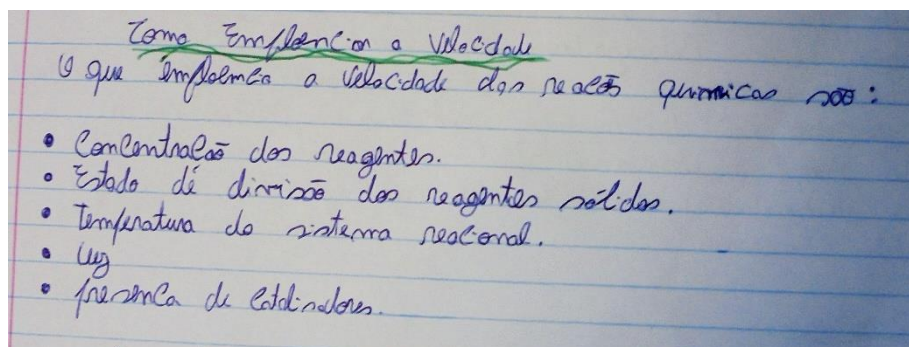 Como Emfloencion a Velocidade
O que emfloencia a velocidade das reacõs quimicas são:
• Concentracão dos reagentes.
• Estado de divisão dos reagentes sólidos.
• Temperatura do sistema reacional.
• luz
• presenca de catalisadores.